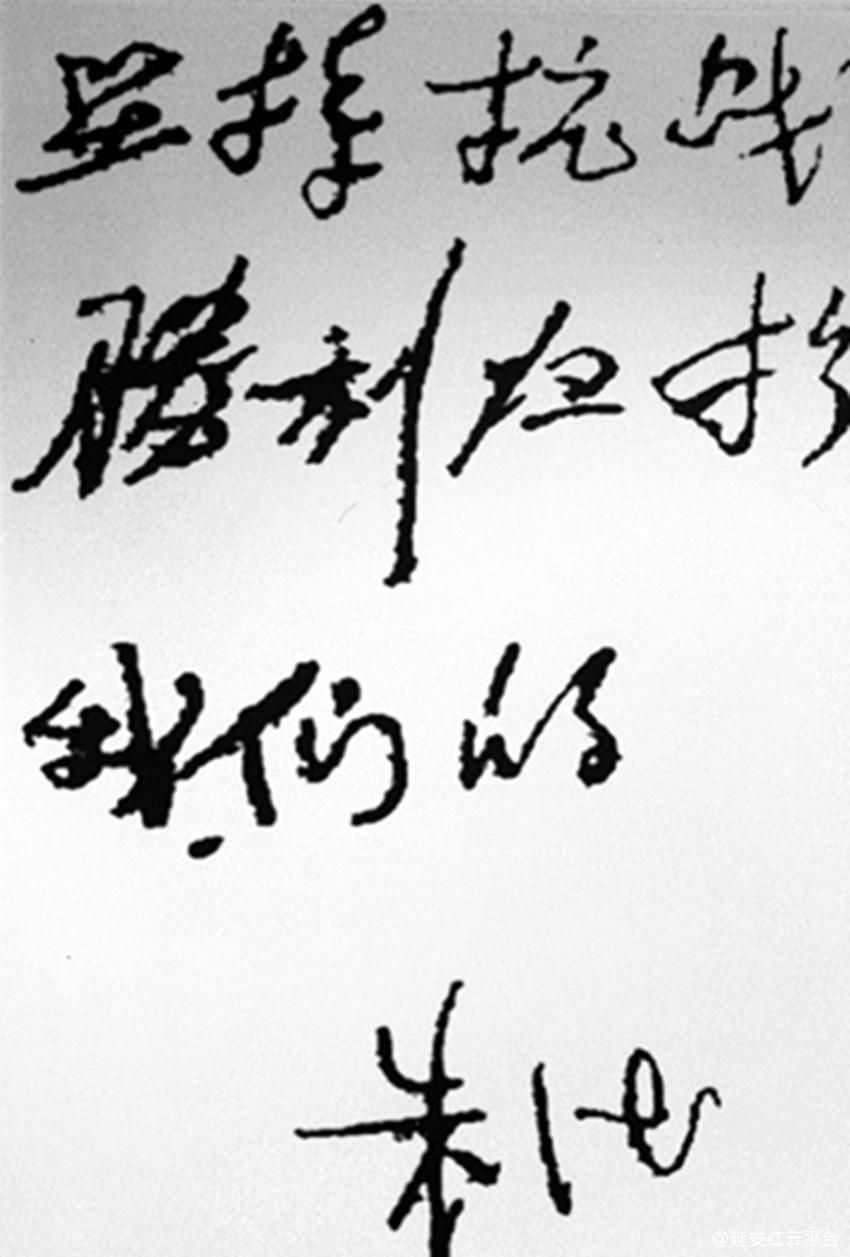 坚持抗战
胜利在于
我们的
朱德
@延安红云平台